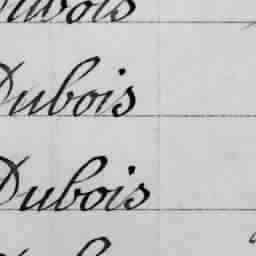 Dubois
Dubois
Dubois